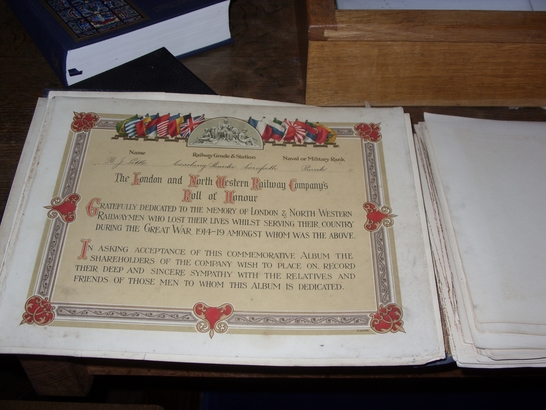 Name Railway Grade & Station Naval or Military Rank
The London and North Western Railway Company's
Roll of Honour
GRATEFULLY DEDICATED TO THE MEMORY OF LONDON & NORTH WESTERN
RAILWAYMEN WHO LOST THEIR LIVES WHILST SERVING THEIR COUNTRY
DURING THE GREAT WAR, 1914-19 AMONGST WHOM WAS THE ABOVE.
IN ASKING ACCEPTANCE OF THIS COMMEMORATIVE ALBUM THE
SHAREHOLDERS OF THE COMPANY WISH TO PLACE ON RECORD
THEIR DEEP AND SINCERE SYMPATHY WITH THE RELATIVES AND
FRIENDS OF THOSE MEN TO WHOM THIS ALBUM IS DEDICATED.